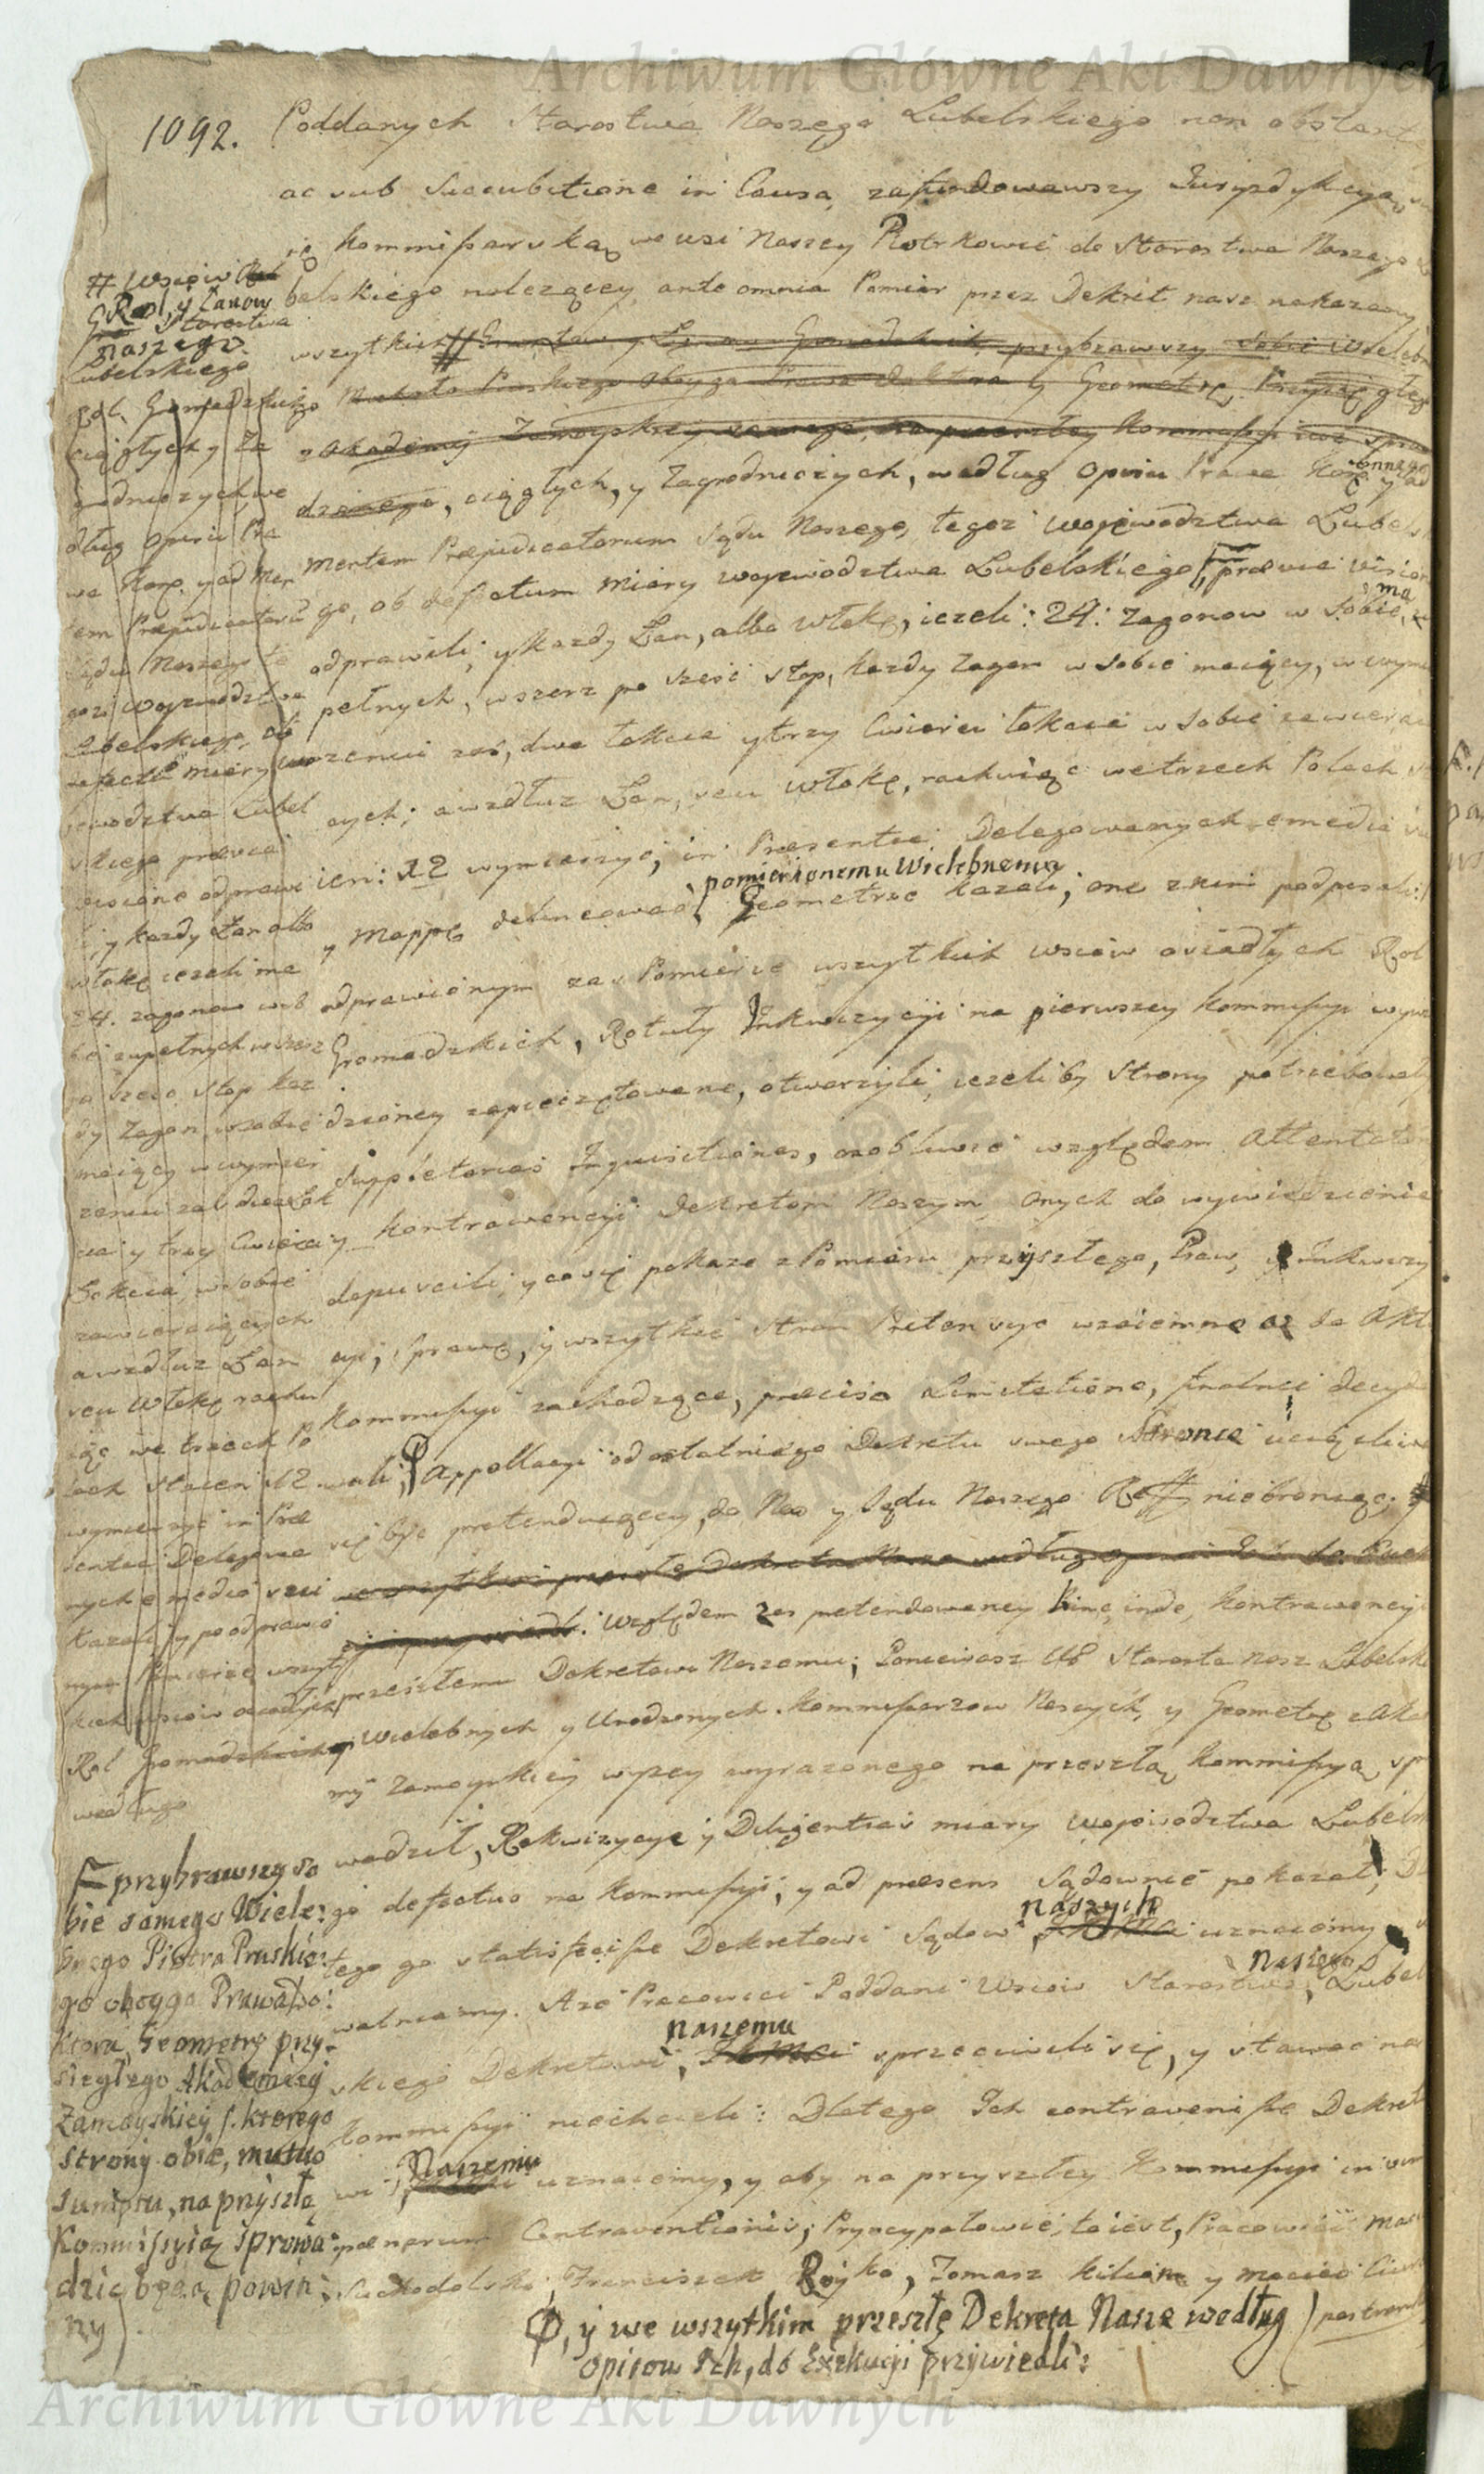 Archiwum Główne Akt Dawnych
1092.
Poddanych Starostwa Naszego Lubelskiego non obstant
ac sub Succubitione in Causa, zafundowawszy Jurysdykcyą
kommissarską we wsi Naszey Piotrkowie do Starostwa Naszego
belskiego nalezącey, ante omnia Pomiar przez Dekret nasz nakazany
wszytkich # Gruntow y Łanow Gromadzkich, przybrawszy Sobie Wieleb
Piotra Pruskiego Oboyga Prawa Doktora y Geometrę Przysięgłego
z Akademij Zamoyskiey, na przeszłey Kommissyi
dzonego, ciągłych, y Zagrodniczych, według Opisu Prawa Kor. onnego y ad
mentem Praejudicatorum Sądu Naszego, tegoz Woiewodztwa Lubels
go, ob defectum miary woiewodztwa Lubelskiego, praevia visione
odprawili; y kazdy Łan, albo Włokę, iezeli: 24: Zagonow w Sobie, ma
pełnych, wszerz po szesć stop, kazdy Zagon w sobie maiący, w wymie
rzeniu zas, dwa łokcie y trzy Cwierci łokcia w sobie zawieraią
cych; awzdłuz Łan, seu Włokę, rachuiąc we trzech Polach
ien: 12 wymierzyć; in Praesentia Delegowanych e medio sui
y Mappę delineować, pomienionemu Wielebnemu Geometrze kazali; one z nim podpisali;
odprawionym zas Pomierze wszytkich wsiow osiadłych Rol
Gromadzkich, Rotuły Inkwizycyi na pierwszey Kommissyi wywie
dzioney zapieczętowane, otworzyli, iezeliby Strony potrzebowały
Suppletorias Inquisitiones, osobliwie względem Attentatow
y kontrawencyi Dekretom Naszym, onych do wywiedzienia
dopuscili; y co się pokaze z Pomiaru przyszłego, Praw, y Inkwizy
cyi, sprawę, y wszytkie stron Pretensye wzaiemne az do Aktu
Kommissyi zachodzące, praecisa Limitatione, finalnie decydo
wali; Ф Appellacyi od ostatniego Dekretu swego Stronie uciązliwą
się być pretenduiącey, do Nas y Sądu Naszego Reffgo niebroniąc;
wszytkim przeszłe Dekreta Nasze według opisow Ich do Exek
przywiedli. Względem zas pretendowaney hinc inde kontrawencyi
przeszłemu Dekretowi Naszemu; Poniewasz Ur Starosta nasz Lubelski
Wielebnych y Urodzonych Kommissarzow Naszych, y Geometrę z Akade
mij Zamoyskiey wyzey wyrazonego na przeszłą Kommissyą spro
wadził, Rekwizycye y Diligentias miary Woiewodztwa Lubels
go defectus na Kommissyi, y ad praesens Sądownie pokazał, Dla
tego go satisfecisse Dekretowi Sądow naszych JKMci uznaiemy
walniamy. Aze Pracowici Poddani Wsiow Starostwa, Naszego Lubel
skiego Dekretowi, naszemu JKMci sprzeciwili się, y stawac na
Kommissyi niechcieli: Dlatego Ich contravenisse Dekreto
wi, Naszemu uznaiemy, y aby na przyszłey Kommissyi in vim
paenarum Contraventionis; Pryncypałowie, to iest, Pracowici Ma
Suchodolski, Franciszek Royko, Tomasz Kilian y Maciei
Ф, y we wszytkim przeszłe Dekreta Nasze według
opisow Ich, do Exekucyi przywiedli:
# Wsiow
Rol, y Łanow
Starostwa
Naszego
Lubelskiego
Rol Gromadzkich
ciągłych y Za
grodniczych we
dług Opisu Pra
wa Kor. y ad Men
tem Praejudicatorū
Sądu Naszego te
goz Woiewodztwa
Lubelskiego, ob
defectū miary
woiewodztwa Lubel
skiego praevia
visione odprawi
li, y kazdy Łan albo
włokę iezeli ma
24. zagonow w so
bie zupełnych wszerz
po szesć stop kaz
dy Zagon w sobie
maiący w wymie
rzeniu zas dwa łok
cie y trzy Cwierci
Łokcia, w sobie
zawieraiących
awzdłuz Łan
seu Włokę rachu
iąc we trzech Po
lach staien 12
wymierzyć in Prae
sentia Delegowa
nych e medio sui
kazali, y po odprawio
nym Pomierze wszyt
kich wsiow osiadłych
Rol Gromadzkich
według
przybrawszy so
bie samego Wiele:
bnego Piotra Pruskie:
go oboyga Prawa Do:
ktora, Geometrę przy:
sięgłego Akademiey
Zamoyskiey (. ktorego
strony obie, mutuo
sumptu, na przyszłą
Kommissyią sprowa:
dzic będą powin:
ny)
Archiwum Główne Akt Dawnych